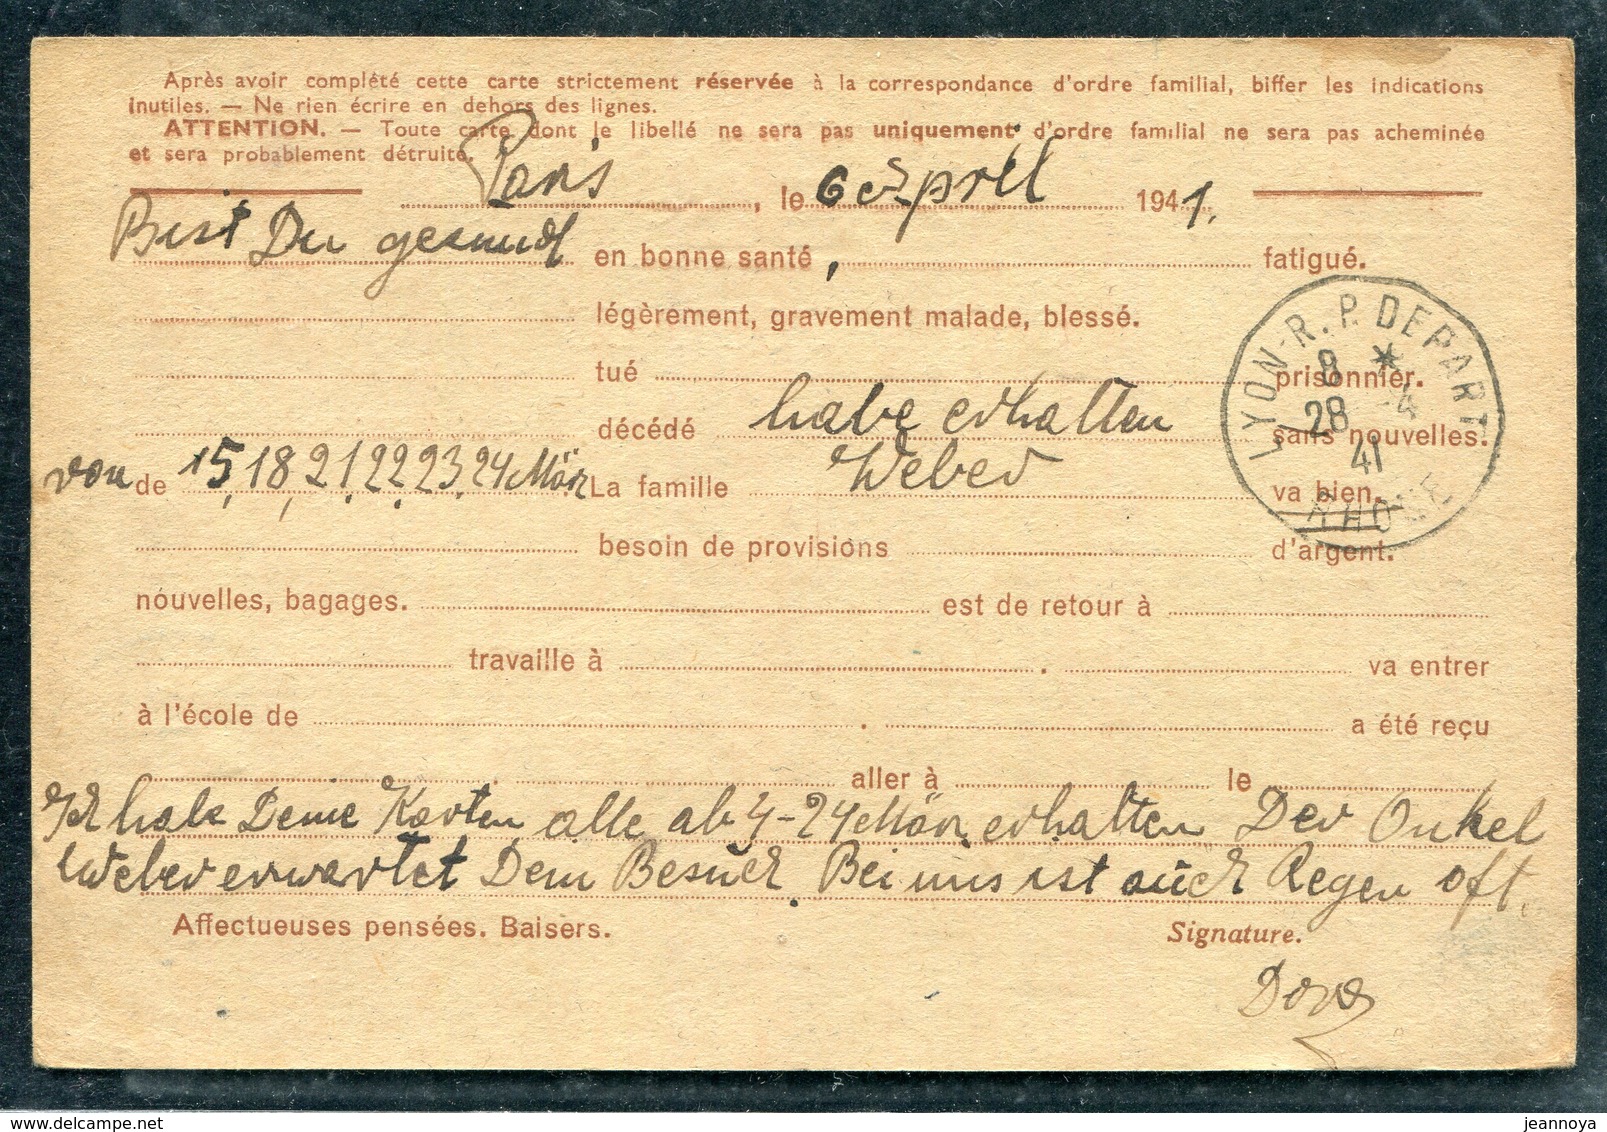 Après avoir complété cette carte strictement réservée à la correspondance d'ordre familial, biffer les indications
inutiles. — Ne rien écrire en dehors des lignes.
ATTENTION. — Toute carte dont le libellé ne sera pas uniquement d'ordre familial ne sera pas acheminée
et sera probablement détruite.
Paris, le 6 April 1941.
Bist Du gesund en bonne santé, fatigué.
légèrement, gravement malade, blessé.
tué prisonnier.
décédé habe erhalten sans nouvelles.
von de 15, 18, 21, 22, 23, 24 März La famille Weber va bien.
besoin de provisions d'argent.
nouvelles, bagages. est de retour à
travaille à . va entrer
à l'école de . a été reçu
. aller à le
Ich habe Deine Karten alle ab 4-24 März erhalten Der Onkel
Weber erwartet Dein Besuch. Bei uns ist auch Regen oft.
Affectueuses pensées. Baisers. Signature.
Dora
LYON-R.P. DEPART
8 *
28 -4
41
RHONE
delcampe.net
jeannoya